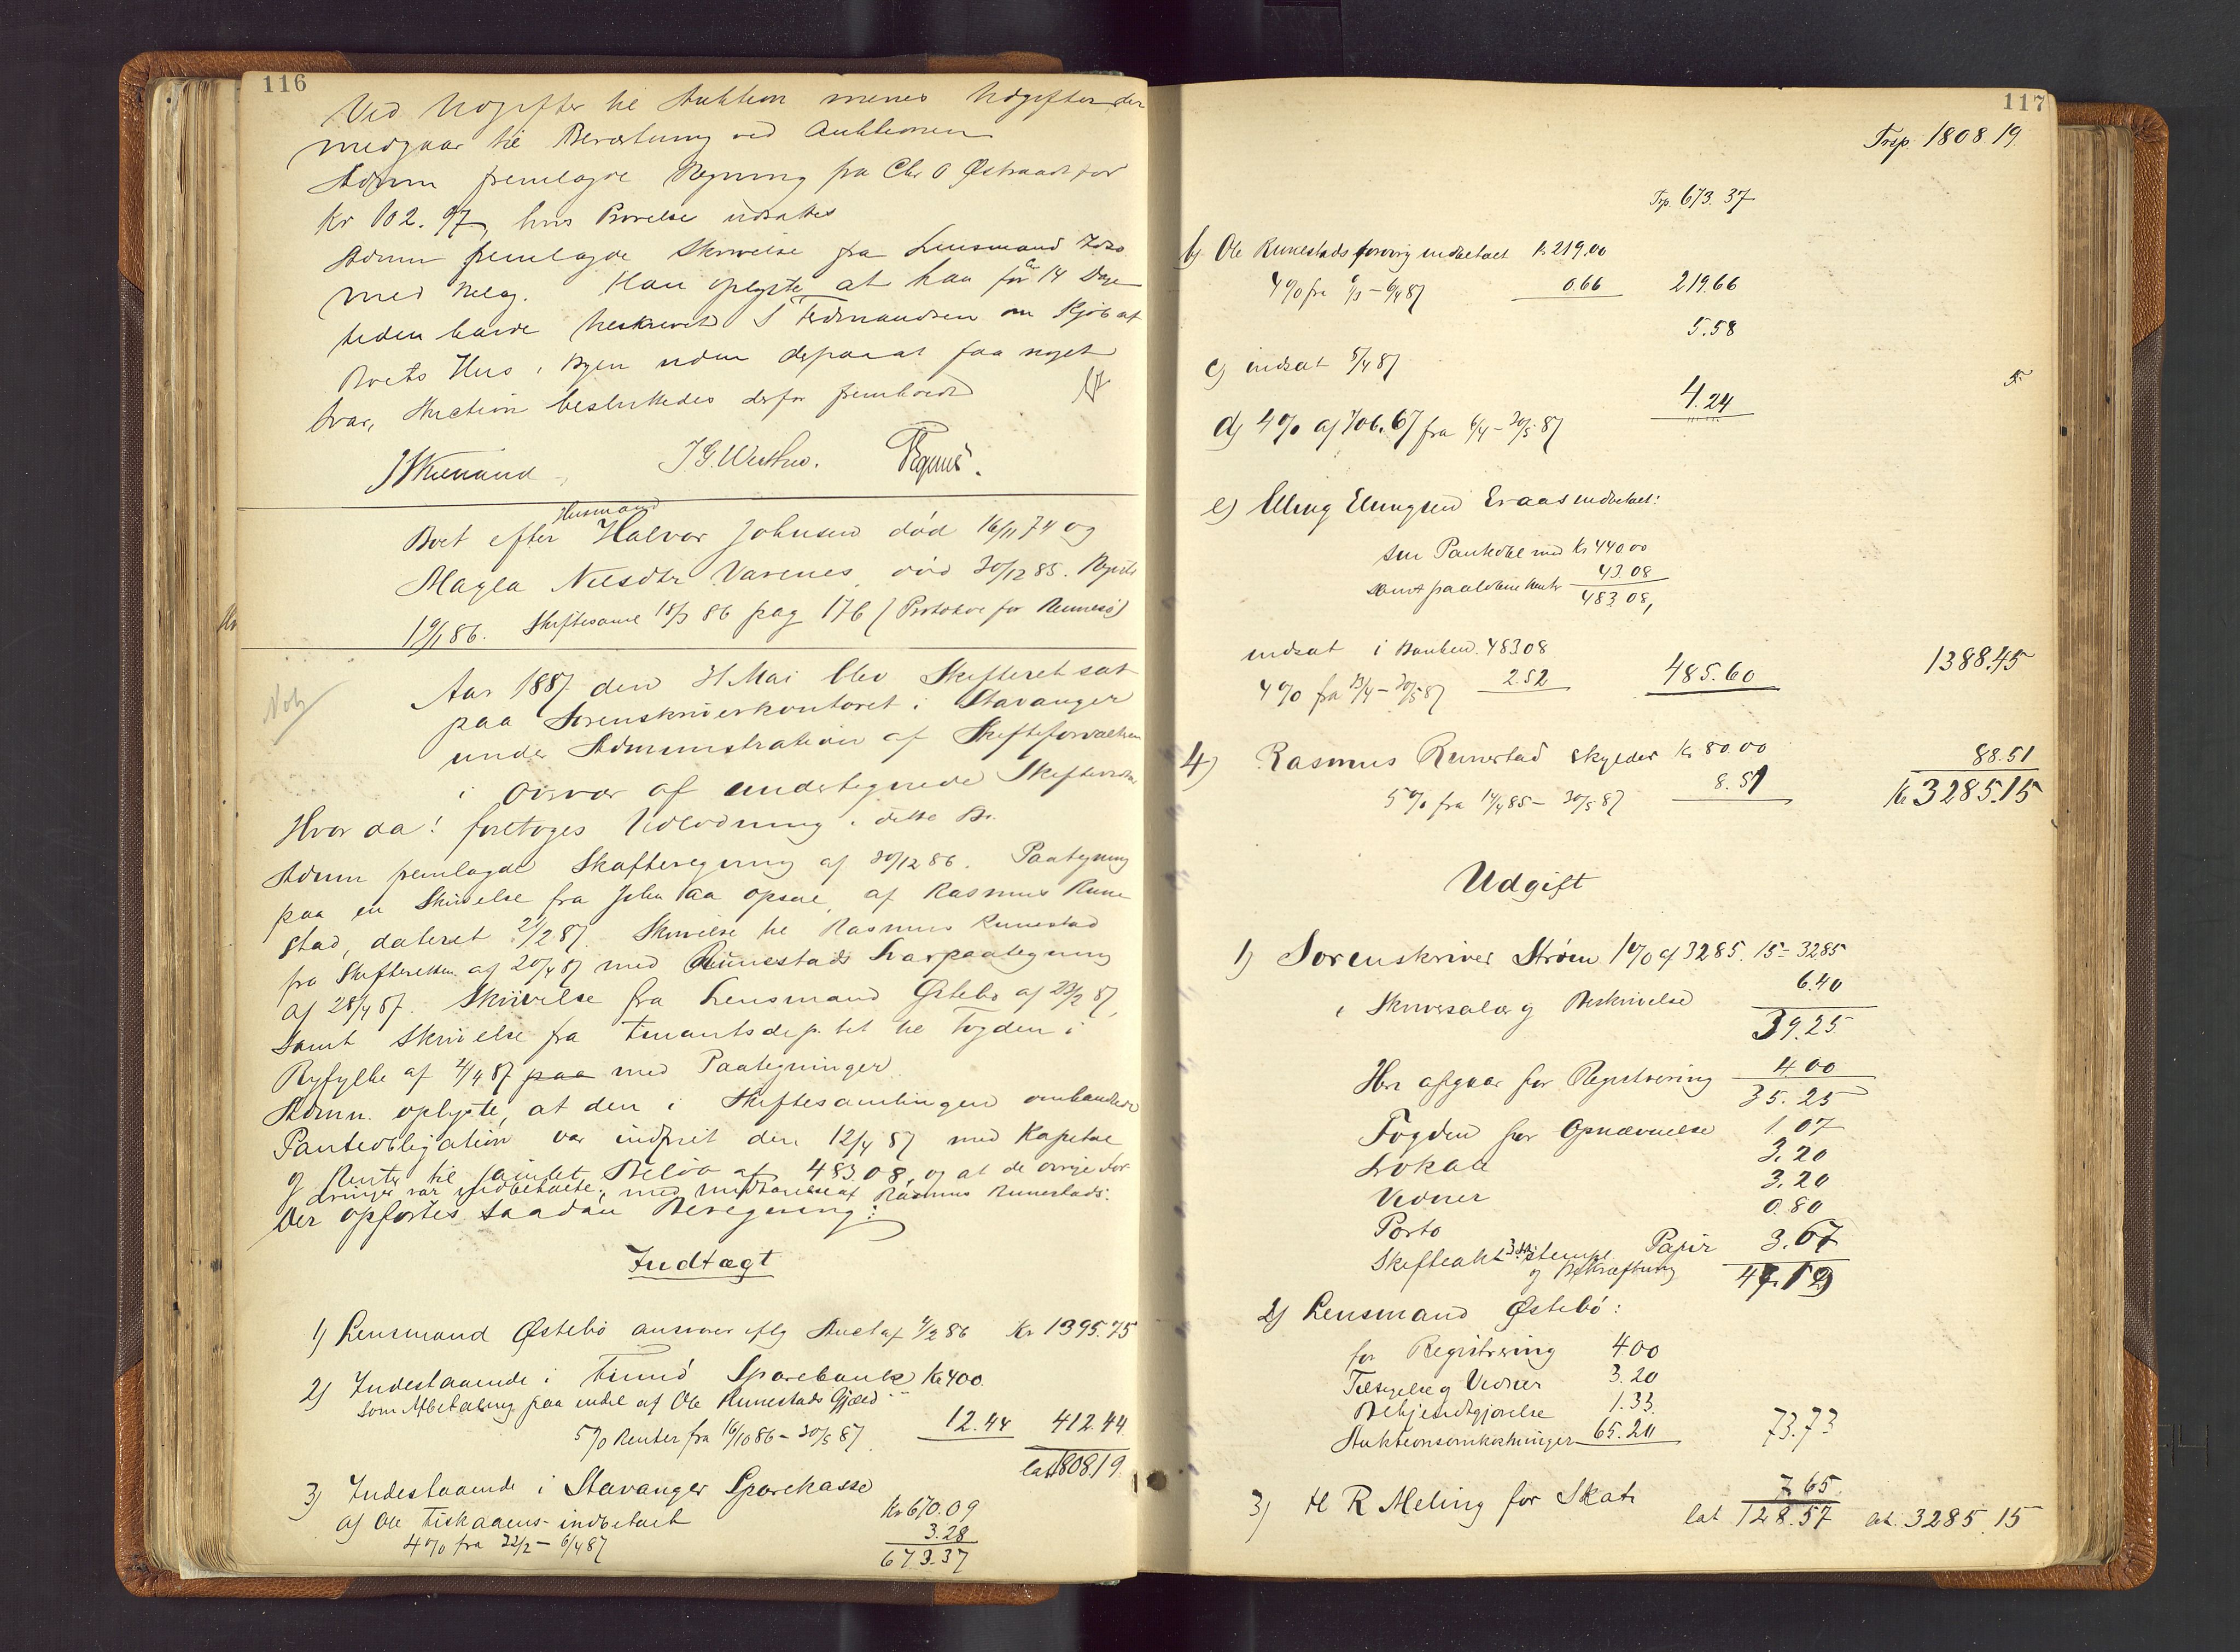 116
Ved Udgifter til Auktion menes Udgifter der
medgaar til Beværtning ved Auktionen
Admin fremlagde Regning fra Chr O Østraadt for
Kr 102.97, hvis Prøvelse udsattes
Admin fremlagde Skrivelse fra Lensmand
med Bilag. Han oplyste at han for ca 14 Dage
siden havde tilskrevet S Ferdinandsen om Kjøb af
Boets Hus i Byen uden derpaa at faa noget
Svar, Auction besluttedes derfor fremholdt
Boet efter Husmand Halvor Johnsen død 16/11 74 og
Magla Nilsdtr Varenes, død 30/12 85. Registr
19/1 86. Skiftesaml 18/3 86 pag 176 (Protokol for Rennesø)
Not
Aar 1887 den 31 Mai blev Skifteret sat
paa Sorenskriverkontoret i Stavanger
under Administration af Skifteforvalteren
i Overvær af undertegnede Skiftevidner
Hvorda! foretoges Udlodning i dette Bo.
Admin fremlagde Skifteregning af 30/12 86. Paategning
paa en Skrivelse fra John Aa Opsal, af Rasmus Rune
stad, dateret 21/2 87. Skrivelse til Rasmus Runestad
fra Skifteretten af 20/4 87 med Runestads Svarpaategning
af 28/4 87. Skrivelse fra Lensmand Østebø af 23/2 87,
samt Skrivelse fra Finantsdep.tet til Fogden i
Ryfylke af 4/4 87 paa med Paategninger
Admin. oplyste, at den i Skiftesamlingen omhandlede
Panteobligation var indfriet den 12/4 87 med Kapital
og Renter til samlet Beløb af 483.08, og at de øvrige For
dringer var indbetalte, med Undtagelse af Rasmus Runestads.
Der opførtes saadan Beregning:
Indtægt
1) Lensmand Østebø ansvarer iflg Auct af 4/2 86 Kr 1395.75
2) Indestaaende i Finnø Sparebank Kr 400.
som Afbetaling paa endel af Ole Runestads Gjæld
5% Renter fra 16/10 86 - 30/5 87 12.44 412.44
lat. 1808.19
3) Indestaaende i Stavanger Sparekasse
a) Ole Fiskaaens indbetalt Kr 670.09
4% fra 22/2 - 6/4 87 3.28
673.37
117
Trsp. 1808.19.
Trsp. 673.37
b) Ole Runestads forøvrig indbetalt Kr 219.00
4% fra 9/3 - 6/4 87 0.66 219.66
c) indsat 5/4 87 5.58
d) 4% af 706.67 fra 6/4 - 30/5 87 4.24
e) Elling Ellingsen Eraas indbetalt:
sin Panteobl med Kr 440.00
samt paaløbne Renter 43.08
483.08,
indsat i Banken 483.08
4% fra 13/4 - 30/5 87 2.52 485.60 1388.45
4) Rasmus Runestad skylder Kr 80.00
5% fra 14/4 85 - 30/5 87 8.51 88.51
Kr 3285.15
Udgift
1) Sorenskriver Strøm 1% af 3285.15 = 32.85
i Skriversalær og Beskrivelse 6.40
39.25
Her afgaar for Registrering 4.00
35.25
Fogden for Opnævnelse 1.07
Lokale 3.20
Vidner 3.20
Porto 0.80
Skifteakt stempl. Papir
og Bekræftning 3.67
47.19
2) Lensmand Østebø:
for Registrering 4.00
Tilsigelse og Vidner 3.20
Bekjendtgjørelse 1.33
Auktionsomkostninger 65.20 73.73
3) til R Meling for Skat 7.65
lat 128.57 lat. 3285.15